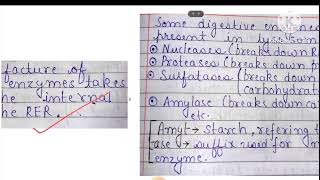 facture of
enzymes takes
he internal
he RER.
Some digestive en
present in lysosom
Nucleases (breaks down R
Proteases (breaks down pr
Sulfatases (breaks down
(carbohydrat
Amylase (breaks down ca
etc.
Amyl → starch, refering t
ase → suffix used for
enzyme.